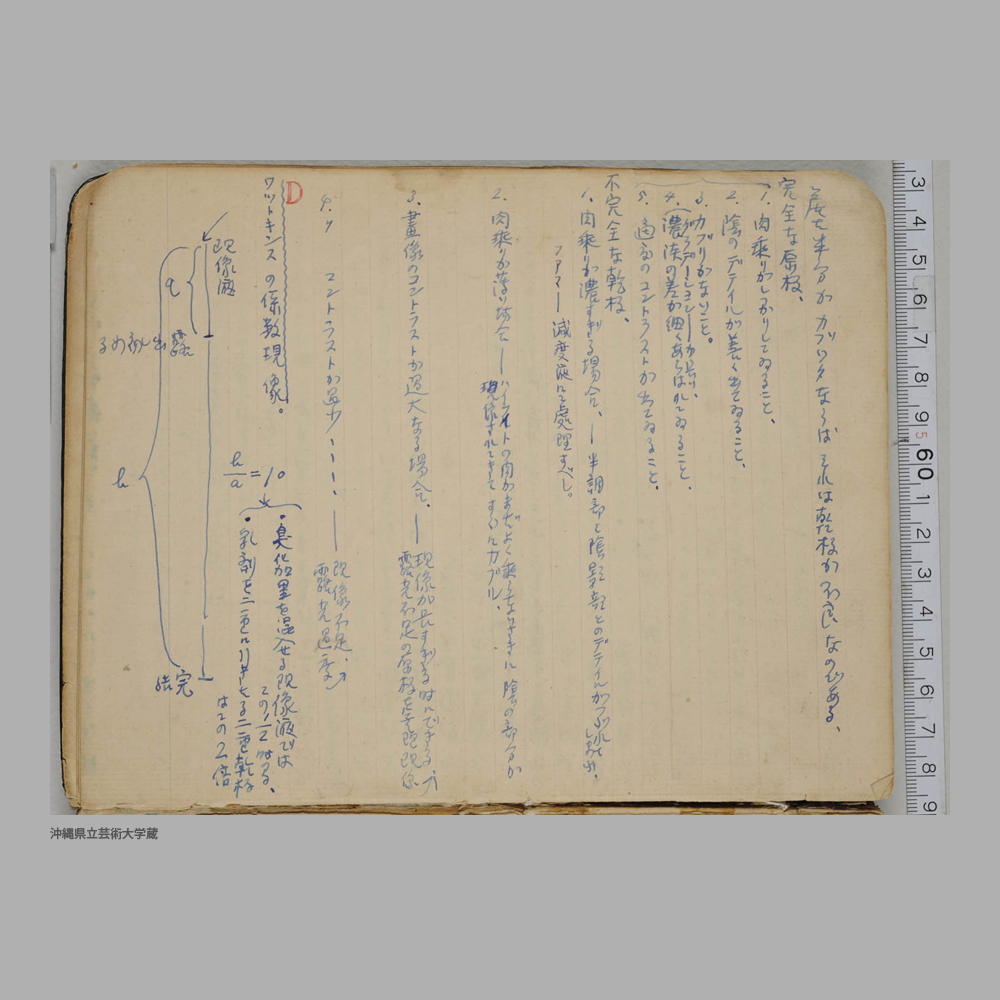 度を半分がカブツタならばそれは乾板が不良なのである、
完全な原板、
1. 肉乗りがしっかりしてゐること、
2. 陰のデテイルが善く出てゐること、
3. カブリがないこと。
4. (グラデーションが長い、
濃淡の差が細くあらはれてゐること、
5. 適度のコントラストが出てゐること、
不完全な乾板、
1. 肉乗りが濃すぎる場合、— 半調部と陰影部とのデテイルがつぶれ
フアマー減度液にて處理すべし。
2. 肉乗りが薄い場合 — ハイライトの肉がまだよく乗らないさきに陰の部分が
現像されてきてすぐにカブル、
3. 畫像のコントラストが過大なる場合、— 現像が長すぎる時にできる、
露光不足の原板を
4. 〃 コントラストが過少、、、、 — 現像不足、
露光過度
D
ワットキンスの係数現像。
現像液
a
露出し初める
h
完結
h/a = 10
・臭化加里を混入せる現像液では
この1/2なる、
・乳剤を二重に引きたる二重乾板
はこの2倍
3 4 5 6 7 8 9 60 1 2 3 4 5 6 7 8 9
沖縄県立芸術大学蔵